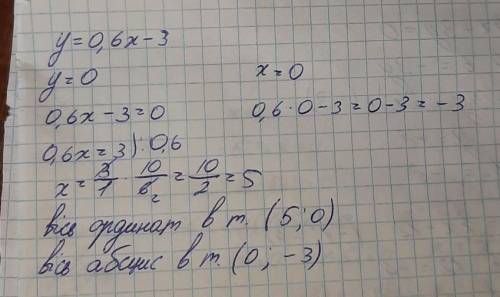 y=0,6x-3
y=0
x=0
0,6x-3=0
0,6·0-3=0-3=-3
0,6x=3|:0,6
x=3/1·10/6₂=10/2=5
вісь ординат в т. (5;0)
вісь абсцис в т. (0;-3)